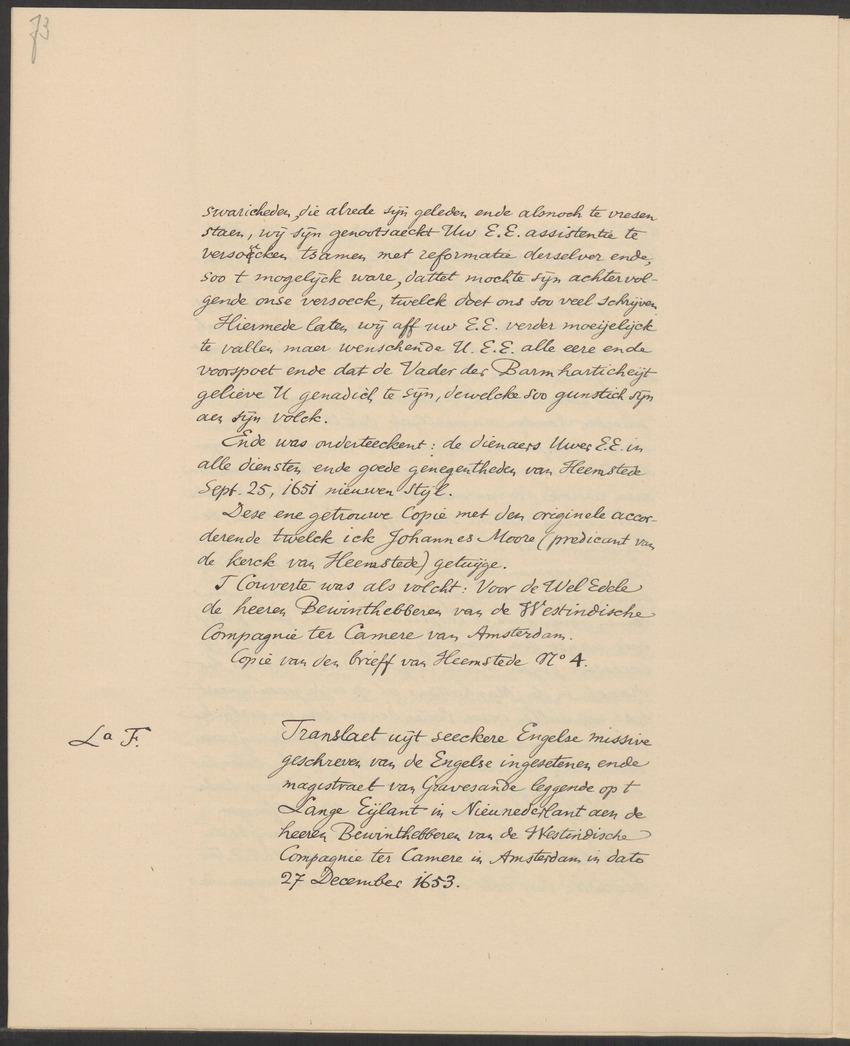 73
swaricheden, die alrede sijn geleden ende alsnoch te vresen
staen, wij sijn genootsaeckt Uw E.E. assistentie te
versoecken tsamen met reformatie derselver ende,
soo t mogelijck ware, dattet mochte sijn achtervol-
gende onse versoeck, twelck doet ons soo veel schrijven
Hiermede laten wij aff uw E.E. verder moeijelijck
te vallen maer wenschende U.E.E. alle eere ende
voorspoet ende dat de Vader der Barmharticheijt
gelieve U genadich te sijn, dewelcke soo gunstich sijn
aen sijn volck.
Ende was onderteeckent: de dienaers Uwer E.E. in
alle diensten ende goede genegentheden van Heemstede
Sept. 25, 1651 nieuwen Stijl.
Dese ene getrouwe Copie met den originele accor-
derende twelck ick Johannes Moore (predicant van
de kerck van Heemstede) getuijge.
T Couverte was als volcht: Voor de Wel Edele
de heeren Bewinthebberen van de Westindische
Compagnie ter Camere van Amsterdam.
Copie van den brieff van Heemstede No 4.
La F.
Translaet uijt seeckere Engelse missive
geschreven van de Engelse ingesetenen ende
magistraet van Gravesande leggende op t
Lange Eijlant in Nieunederlant aen de
heeren Bewinthebberen van de Westindische
Compagnie ter Camere in Amsterdam in dato
27 December 1653.